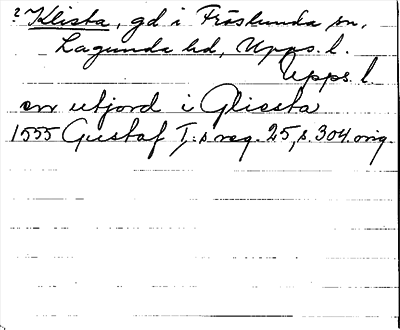 ? Klista, gd i Fröslunda sn,
Lagunda hd, Upps. l.
Upps. l
en utjord i Glissta
1555 Gustaf I:s reg. 25, s. 304 orig.